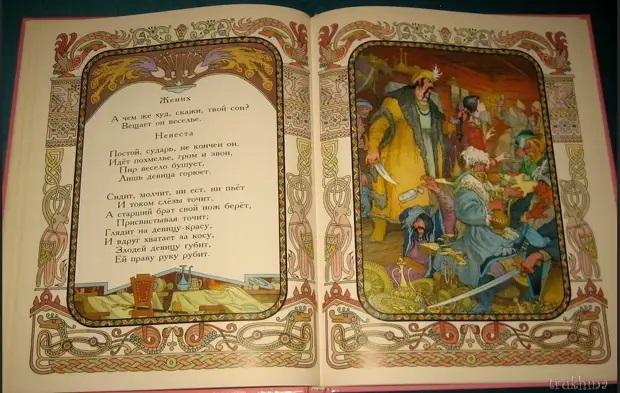 Жених
А чем же худ, скажи, твой сон?
Вещает он веселье.
Невеста
Постой, сударь, не кончен он.
Идёт похмелье, гром и звон,
Пир весело бушует,
Лишь девица горюет.
Сидит, молчит, ни ест, ни пьёт
И током слёзы точит,
А старший брат свой нож берёт,
Присвистывая точит;
Глядит на девицу-красу,
И вдруг хватает за косу,
Злодей девицу губит,
Ей праву руку рубит.
trukhina